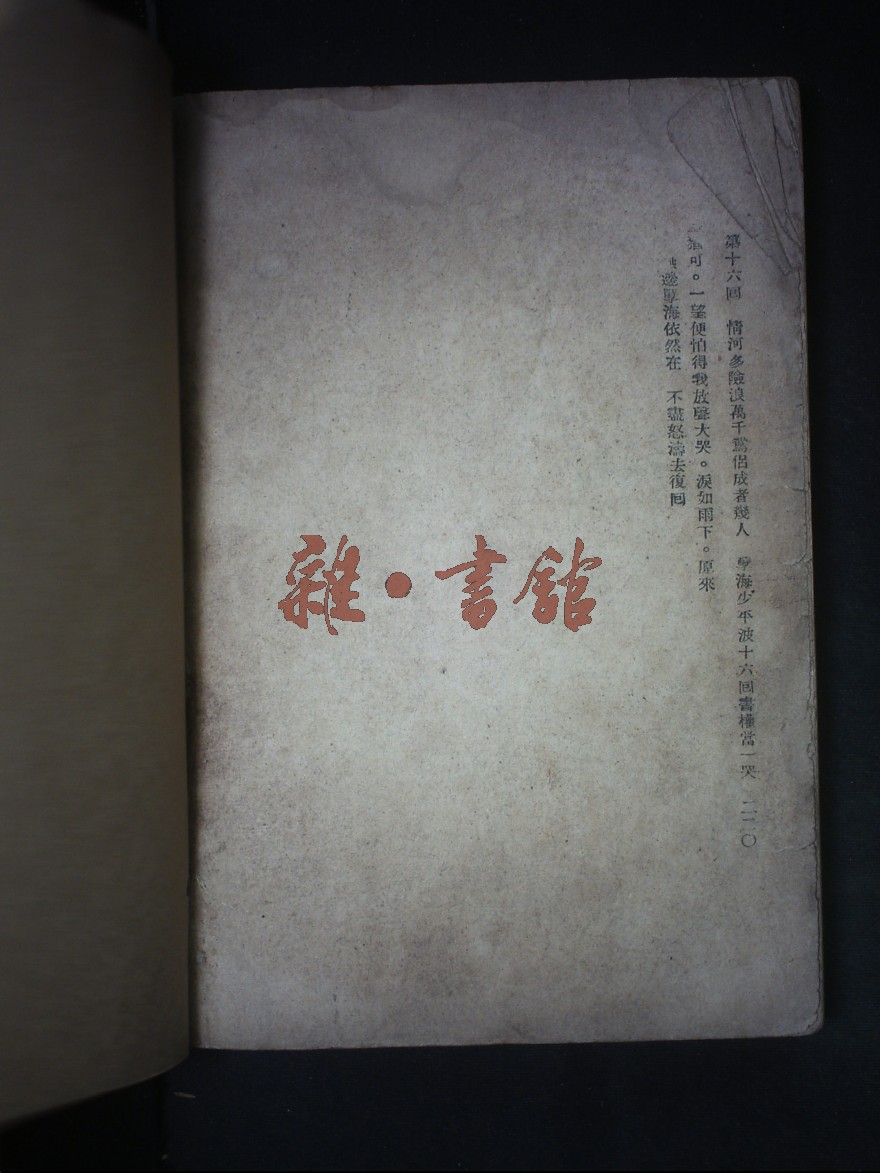 第十六回　情河多險浪萬千鴛侶成者幾人　孽海少平波十六回書權當一哭　二二〇
可。一望便怕得我放聲大哥。淚如雨下。原來
邊孽海依然在　不盡怒濤去復回
雜·書館